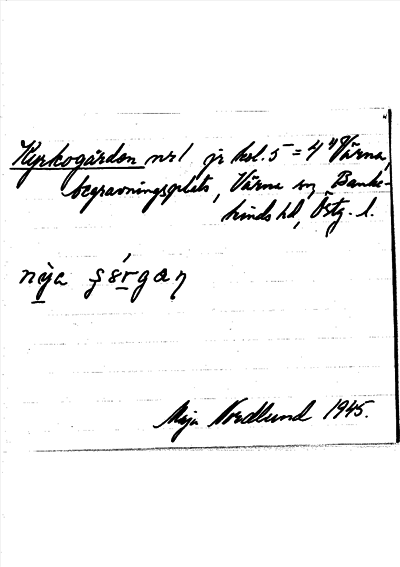 Kyrkogården nr 1 jr kol. 5 = 4 "Värna,
begravningsplats, Värna sn, Banke-
kinds hd, Östg. l.
nẏa şörgan
Maja Nordlund 1945.